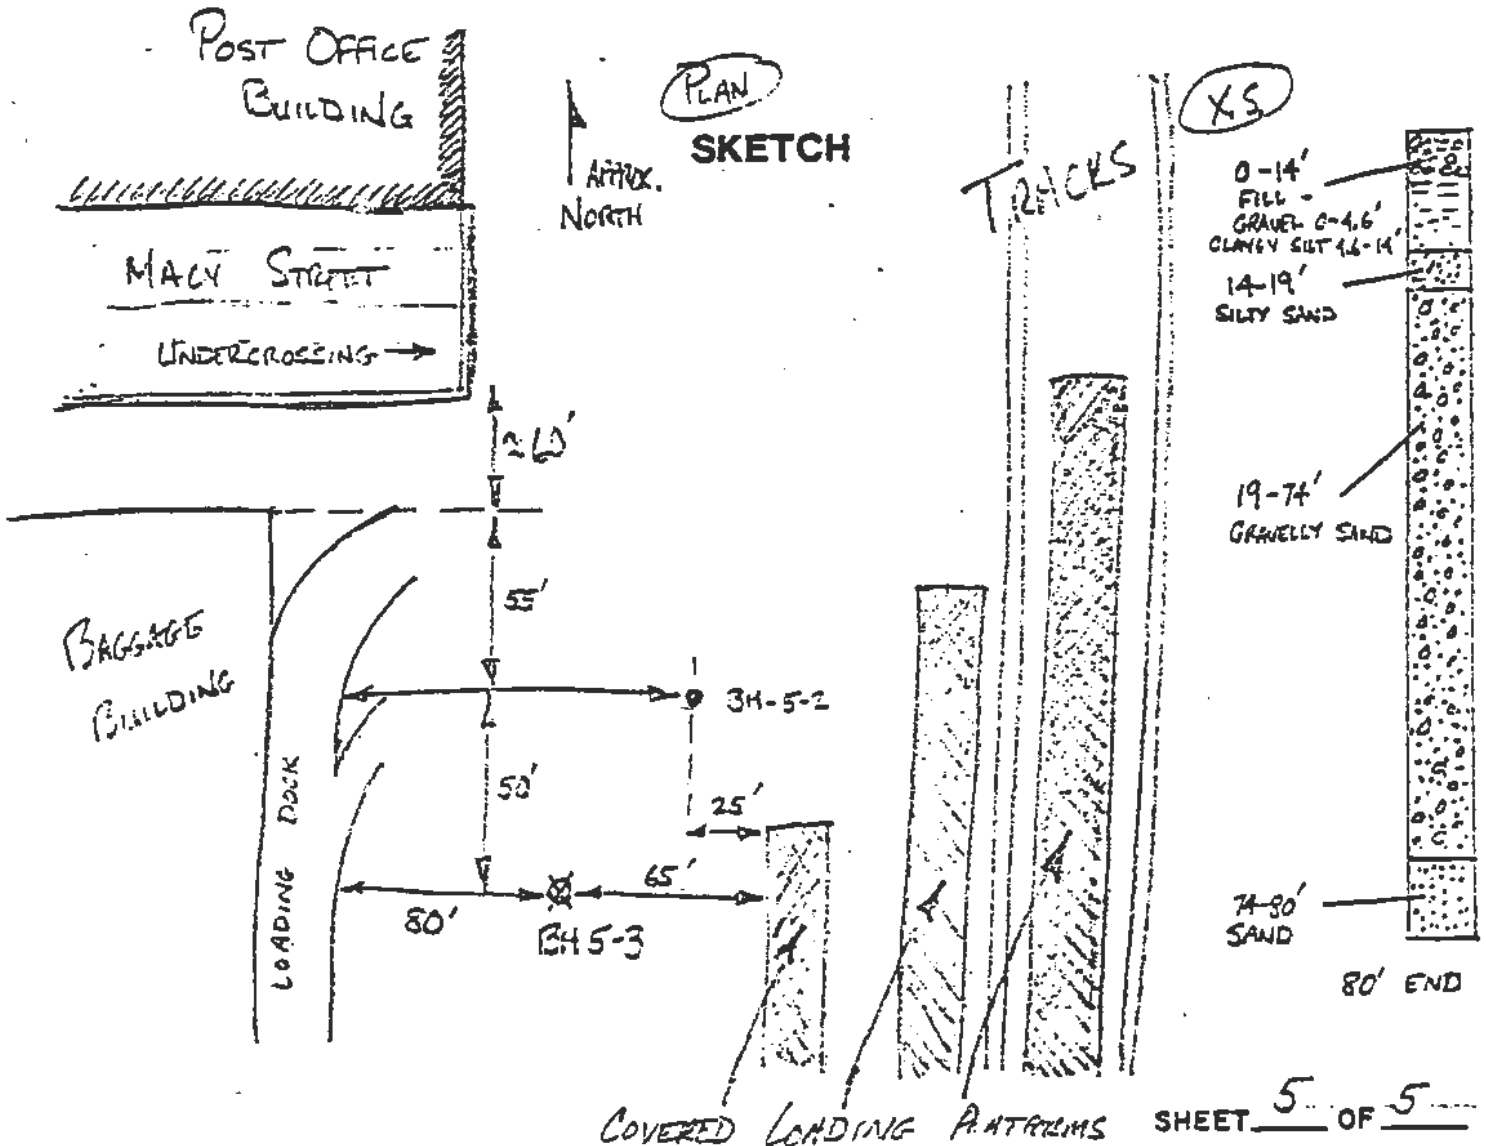 POST OFFICE
BUILDING
PLAN
SKETCH
APPROX.
NORTH
MACY STREET
UNDERCROSSING
TRACKS
XS
0-14'
FILL -
GRAVEL 0-4.6'
CLAYEY SILT 4.6-14'
14-19'
SILTY SAND
19-74'
GRAVELLY SAND
74-80'
SAND
80' END
55'
BAGGAGE
BUILDING
BH-5-2
50'
25'
LOADING DOCK
65'
80'
BH 5-3
COVERED LOADING PLATFORMS
SHEET 5 OF 5